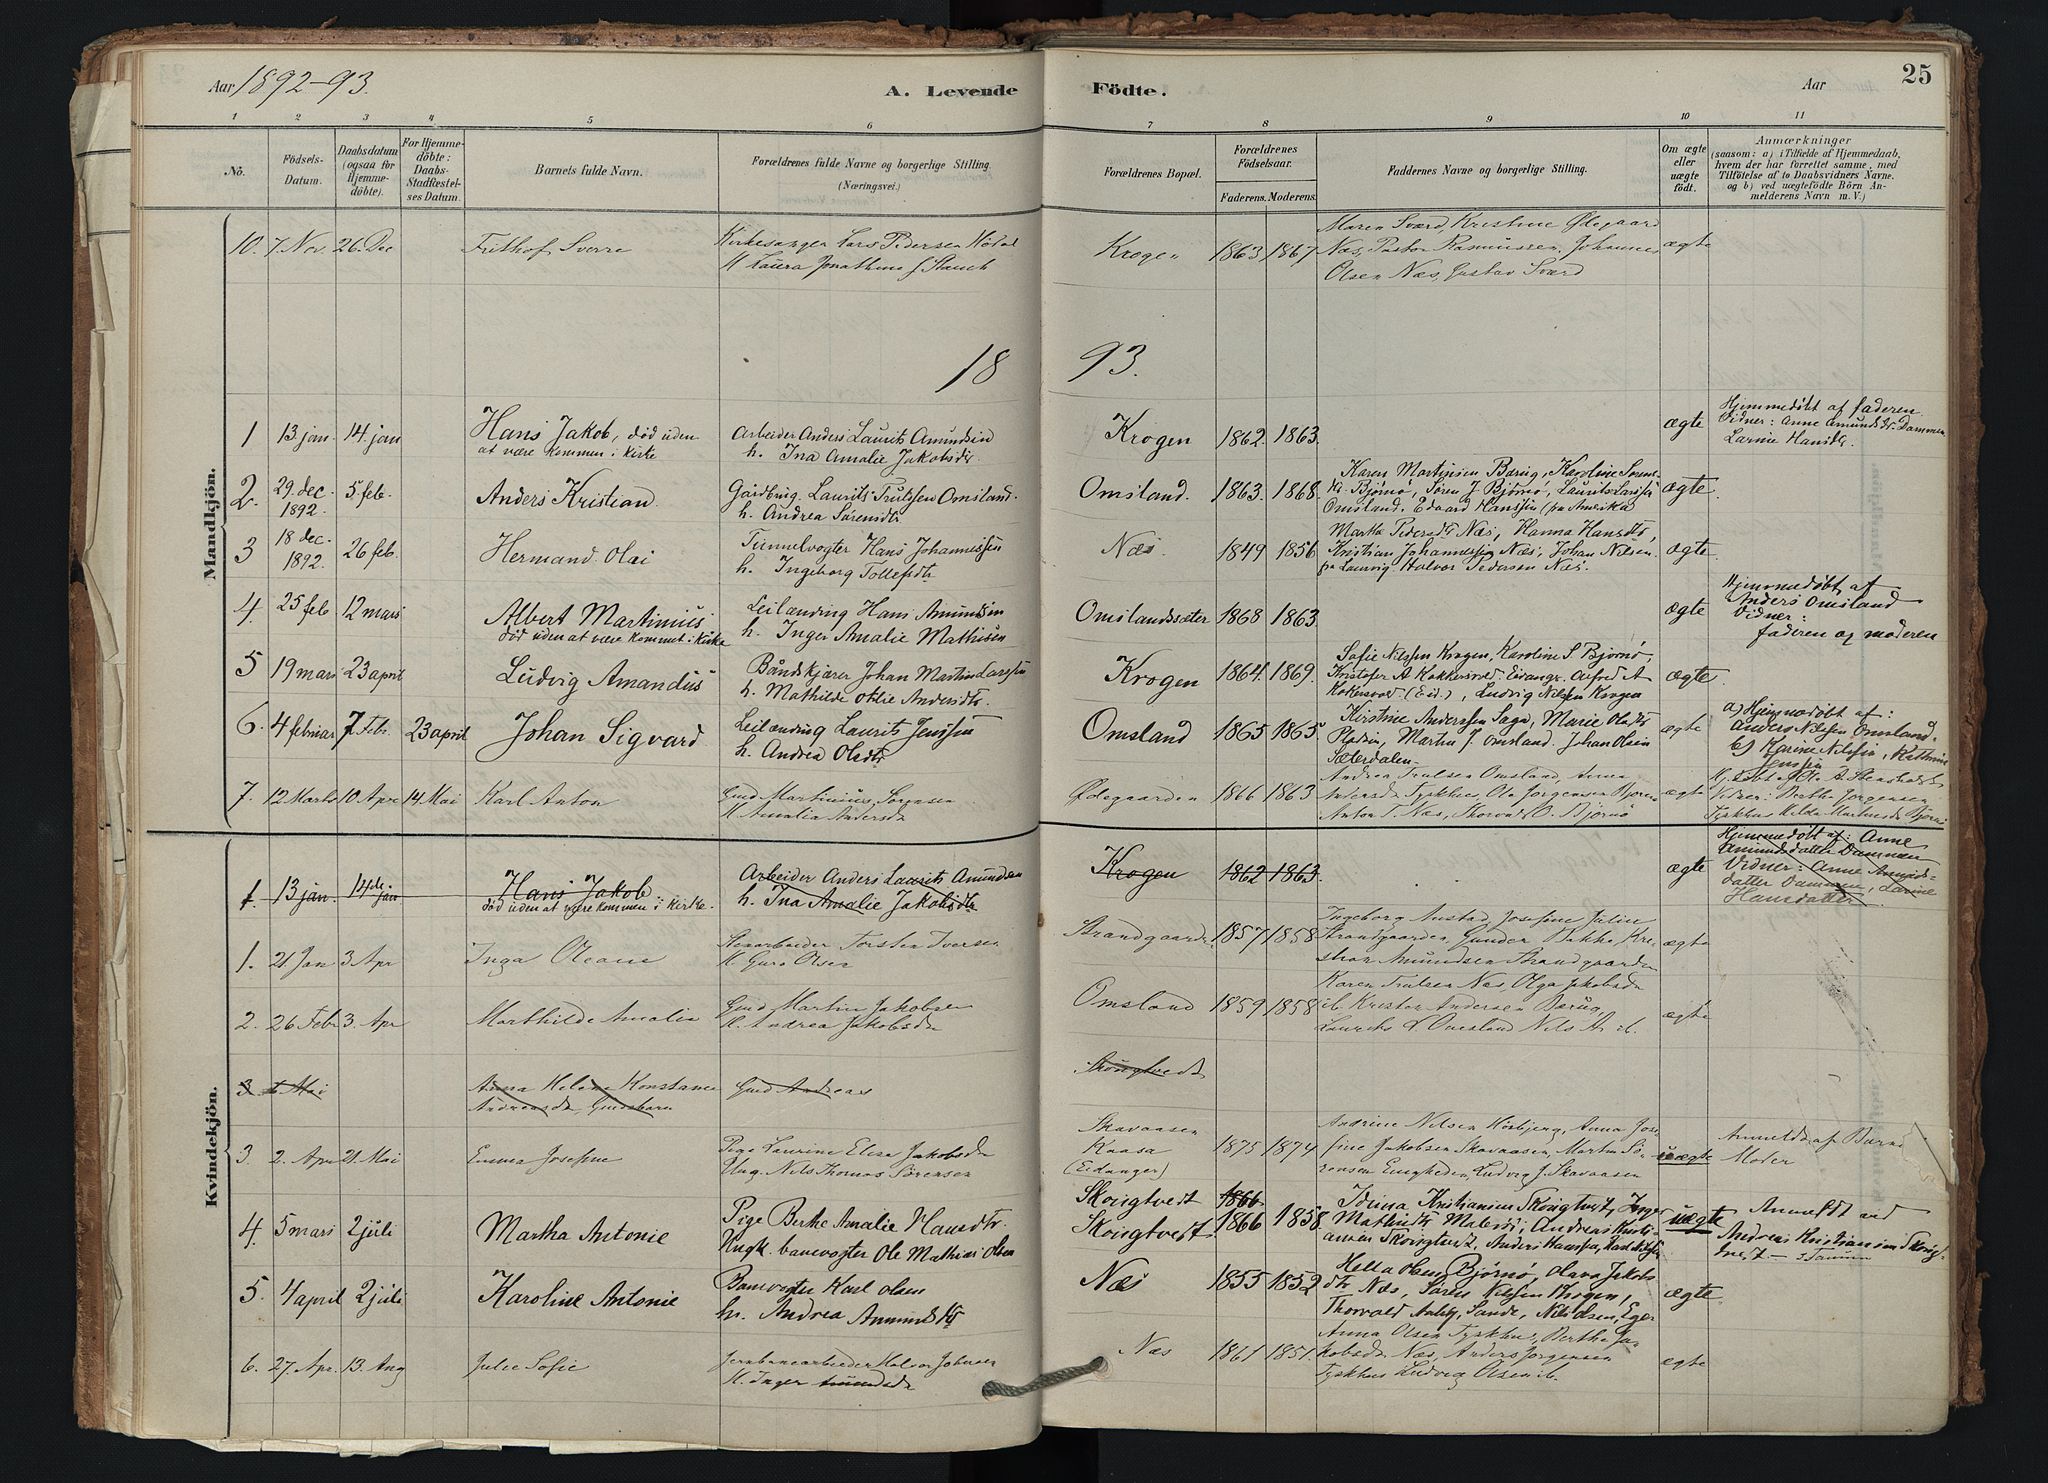 Aar 1892-93.
A. Levende Födte.
Aar
25
1 2 3 4 5 6 7 8 9 10 11
Nö.
Födsels-Datum.
Daabsdatum (ogsaa for Hjemme-döbte).
For Hjemme-döbte: Daabs-Stadfæstel-ses Datum.
Barnets fulde Navn.
Forældrenes fulde Navne og borgerlige Stilling. (Næringsvei.)
Forældrenes Bopæl.
Forældrenes Födselsaar.
Faderens. Moderens.
Faddernes Navne og borgerlige Stilling.
Om ægte eller uægte födt.
Anmærkninger
(saasom: a) i Tilfælde af Hjemmedaab,
hvem der har forrettet samme, med
Tilföielse af to Daabsvidners Navne.
og b) ved uægtefödte Börn An-
melderens Navn m. V.)
Mandkjön.
10. 7 Nov. 26 Dec Frithof Sverre Kirkesanger Lars Pedersen
H. Laura Jonathine
Krogen 1863 1867
Maren Sværd, Kristine Ølegaard
Næs, Pastor Rasmussen, Johannes
Olsen Næs, Gustav Sværd
ægte
1893.
1 13 jan 14 jan Hans Jakob, død uden
at være kommen i kirke
Arbeider Anders Laurits Amundsen
h. Ina Amalie Jakobsdtr
Krogen 1862. 1863. ægte
Hjemmedøbt af faderen
Vidner: Anne Amundsdtr. Dammen
Larine Hansdtr.
2. 29 dec. 1892. 5 feb. Anders Kristian
Gårdbrug. Laurits Trulssen Omsland.
h. Andrea Sørensdtr
Omsland. 1863. 1868.
Karen Martinsen Barug, Karoline Sørens-
dtr Bjørnø, Søren J. Bjørnø, Laurits Larssen
Omsland, Edvard Hanssen (fra Amerika)
ægte.
3 18 dec. 1892. 26 feb. Hermand Olai
Tunnelvogter Hans Johannessen
h. Ingeborg Tollefsdtr
Næs. 1849 1856
Martha Pedersdtr Næs, Hanna Hansdtr,
Kristian Johannessen Næs, Johan Nilsen
fra Laurvig. Halvor Pedersen Næs.
ægte.
4. 25 feb 12 mars Albert Martinius
død uden at være kommet i kirke
Leilænding Hans Amundsen
h. Inger Amalie Mathisen
Omslandssæter 1868 1863. ægte
Hjemmedøbt af
Anders Omsland
Vidner:
faderen og moderen
5 19 mars 23 april Ludvig Amandus
Båndskjærer Johan Martin Larssen
h. Mathilde Otilie Andersdtr.
Krogen 1864. 1869.
Sofie Nilssen Krogen, Karoline S. Bjørnø,
Kristofer A Kokkersvold Eidanger. Alfred A
Kokersvold (Eid.), Ludvig Nilsen Krogen
ægte.
6. 4 februar 7 Febr. 23 april Johan Sigvard
Leilænding Laurits Jenssen
h. Andrea Olsdtr
Omsland 1865 1865
Kirstine Anderssen Saga, Marie Olsdtr
Martin J. Omsland. Johan Olsen
Sæterdalen
ægte
a) Hjemmedøbt af:
Anders Nilsen Omsland.
b) Karine Nilssen, Kathrine
Jenssen
7. 12 Marts 10 Apr 14 Mai Karl Anton
Gmd Martinius Sørensen
H. Amalia Andersdr
Ølegaarden 1866 1863
Andrea Trulsen Omsland, Anna
Andersdr Tyskhus, Ola Jorgensen Bjørnø
Anton S. Næs, Thorvald O. Bjørnø
ægte
Vidner: Berthe Jorgensen
Tyskhus Hilda Bjørnø
Kvindekjön.
1. 13 jan. 14de jan Hans Jakob
død uden at være kommen i kirke.
Arbeider Anders Laurits Amundsen
h. Ina Amalie Jakobsdtr
Krogen 1862 1863 ægte
Hjemmedøbt af: Anne
Amundsdatter Dammen
Vidner: Anne Amunds-
datter Dammen, Larine
Hansdatter.
1. 21 Jan 3 Apr Inga Oleane
Stenarbeider Torsten Iversen
H. Guro Olsen
Strandgaarden 1857 1858
Ingeborg Anstad, Josefine Julin
Strandgaarden, Gunder Bakke, Kri-
stian Amundsen Strandgaarden
ægte
2. 26 Febr 3. Apr Marthilde Amalia
Gmd Martin Jakobsen
H. Andrea Jakobsdr
Omsland 1859 1858
Karen Trulsen Næs, Olga Jakobsdr
ib. Kristen Andersen Barug,
Laurits L Omsland Nils A. ib.
ægte
3 1 Mai Anna Helene Konstance
Andreasdr, Gmdsbarn
Gmd Andreas
Skougtvedt
3. 2. Apr 21 Mai Emma Josefine
Pige Laurine Elise Jakobsdr
Ung. Nils Thomas Sørensen
Skavaasen
Kaasa
(Eidanger)
1875 1874
Andrine Nilsen Hørbjerg, Anna Jose-
fine Jakobsen Skavaasen, Martin Sø-
rensen Enigheden, Ludvig J. Skavaasen
uægte
Anmeldt af Barnets
Moder
4. 5 mars 2 juli Martha Antonie
Pige Berthe Amalie Hansdtr.
Ungk. banevogter Ole Mathias Olsen
Skougtvedt 1866
Skougtvedt 1866 1858.
Idinia Kristiansen Skougtvedt, Inger
Mathisdtr Andreas Kristi-
ansen Skougtvedt, Anders Hanssen, Karl Nilsen
uægte
Anmeldt ved
Andreas Kristiansen Skougt-
vedt
5. 4 april 2 juli Karoline Antonie
Banevogter Karl Olsen
h. Andrea Amundsdtr
Næs 1855 1852
Hella Olsen Bjørnø, Olava Jakobs
dtr Næs, Søren Nilssen Krogen,
Thorvald Sande, Nils Olsen, Eger
ægte.
6. 27. Apr. 13. Aug Julie Sofie
Jernbanearbeider Halvor Johnsen
H. Inger Amundsdr
Næs 1861 1851.
Anna Olsen Tyskhus, Berthe Ja-
kobsdr Næs, Anders Jorgensen
Tyskhus Ludvig Olsen ib.
ægte